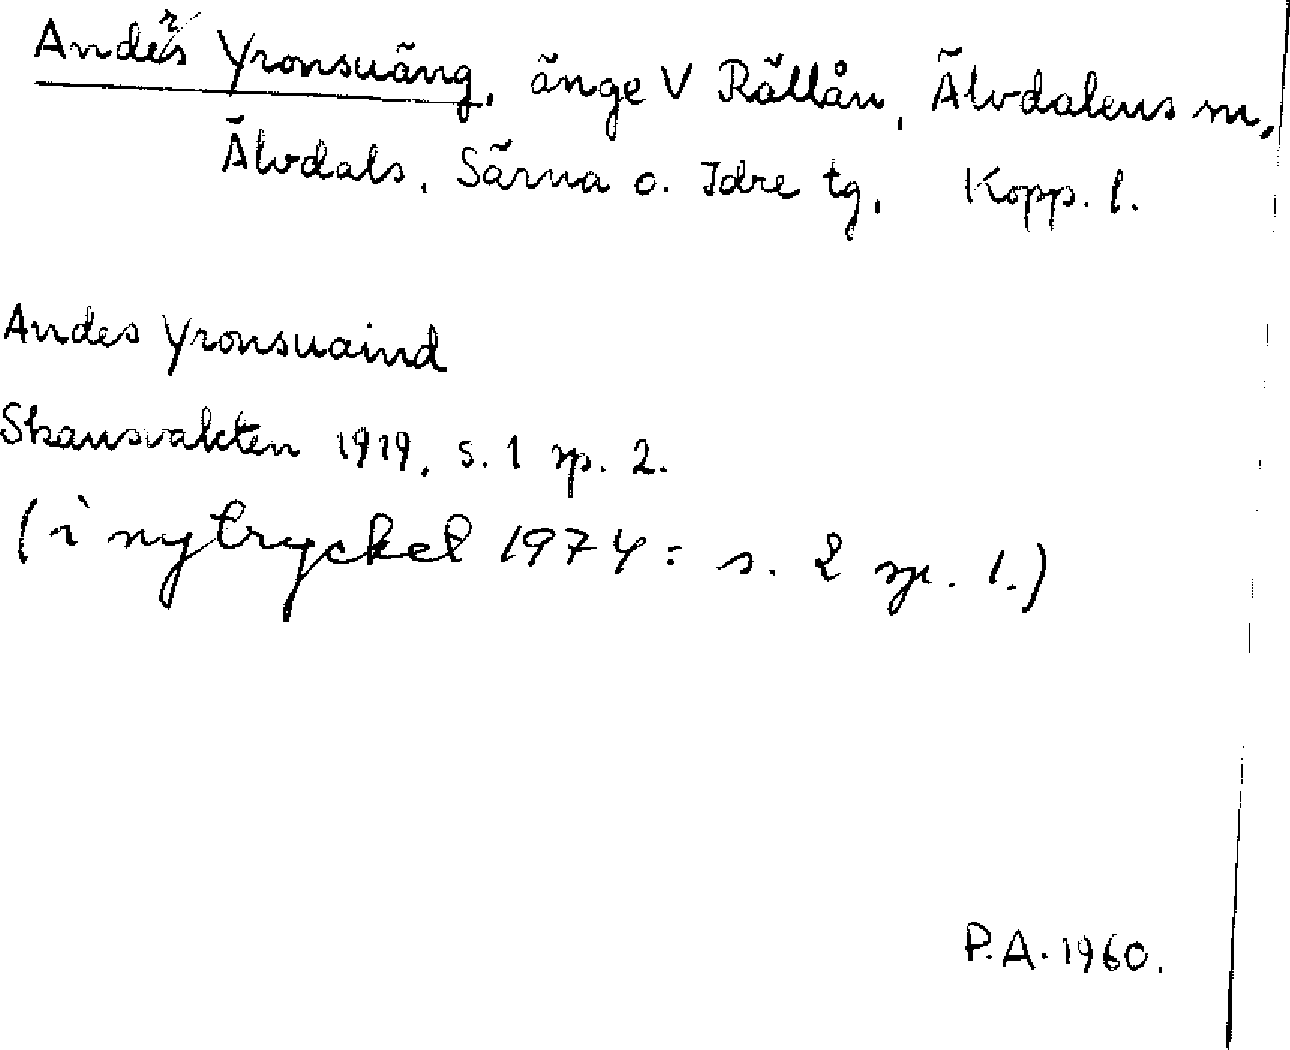 Anders Yronsuäng, änge V Rällån, Älvdalens sn,
Älvdals, Särna o. Idre tg, Kopp. l.
Andes Yronsuaind
Skansvakten 1919, s. 1 sp. 2.
(i nytryckel 1974: s. 2 sp. 1.)
P.A. 1960.